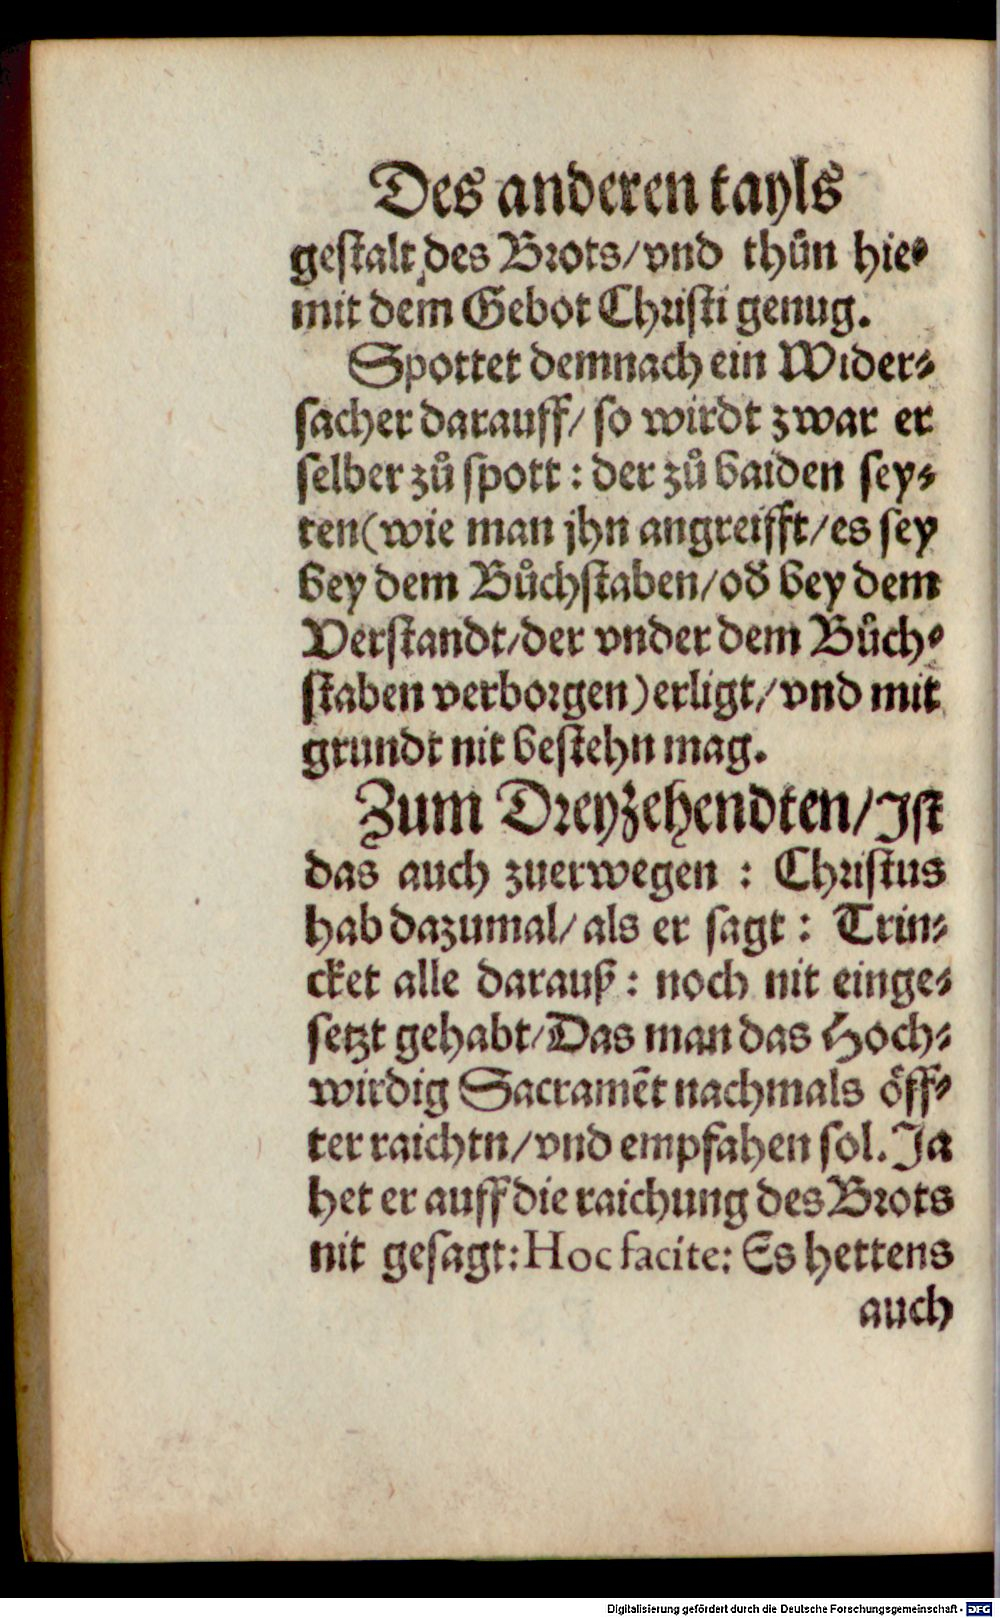 Des anderen tayls
geſtalt des Brots/vnd thůn hie⸗
mit dem Gebot Chriſti genug.
Spottet demnach ein Wider⸗
ſacher darauff/ ſo wirdt zwar er
ſelber zů ſpott : der zů baiden ſey⸗
ten(wie man jhn angreifft/es ſey
bey dem Bůchſtaben/od̕ bey dem
Verſtandt/der vnder dem Bůch⸗
ſtaben verborgen)erligt/vnd mit
grundt nit beſtehn mag.
Zum Dreyzehendten/Iſt
das auch zuerwegen : Chriſtus
hab dazumal/ als er ſagt : Trin⸗
cket alle darauß : noch nit einge⸗
ſetzt gehabt/Das man das Hoch⸗
wirdig Sacramēt nachmals öff⸗
ter raichtn/vnd empfahen ſol. Ja
het er auff die raichung des Brots
nit geſagt: Hoc facite: Es hettens
auch
Digitalisierung gefördert durch die Deutsche Forschungsgemeinschaft - DFG